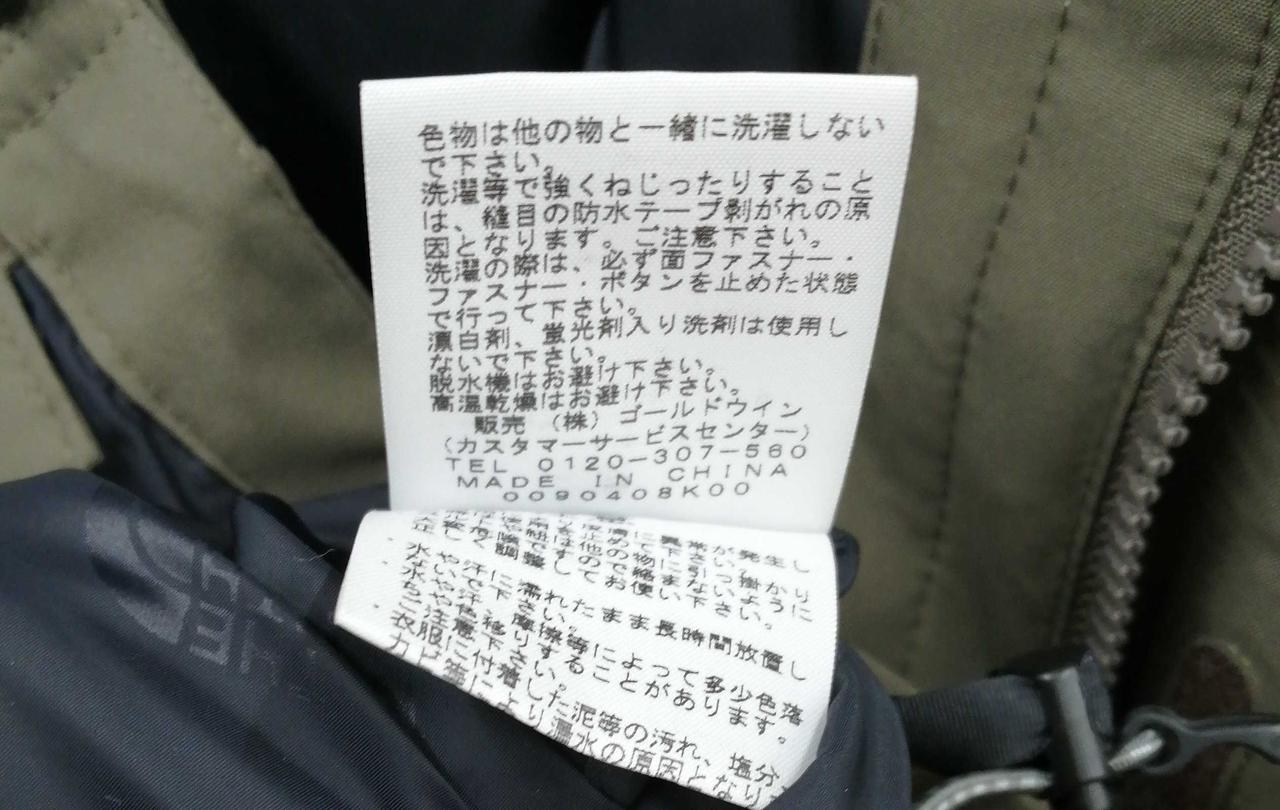 色物は他の物と一緒に洗濯しない
で下さい。
洗濯等で強くねじったりすること
は、縫目の防水テープ剥がれの原
因となります。ご注意下さい。
洗濯の際は、必ず面ファスナー・
ファスナー・ボタンを止めた状態
で行って下さい。
漂白剤、蛍光剤入り洗剤は使用し
ないで下さい。
脱水機はお避け下さい。
高温乾燥はお避け下さい。
販売 (株) ゴールドウイン
(カスタマーサービスセンター)
TEL 0120-307-560
MADE IN CHINA
0090408K00
水や汗に濡れたまま長時間放置し
ないで下さい。
水や汗、摩擦等によって多少色落
色移りすることがあります。
ご注意下さい。
衣服に付着した泥等の汚れ、塩分
カビ等により漏水の原因となり